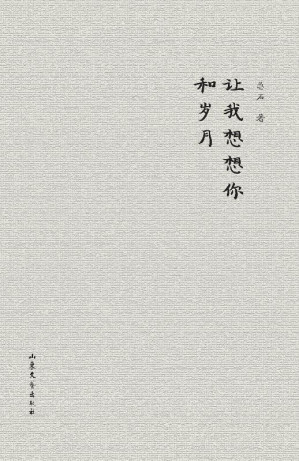 石 著
让我想想你
和岁月
山東文藝出版社